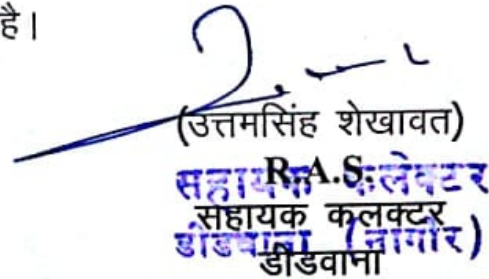 है।
(उत्तमसिंह शेखावत)
R.A.S.
सहायक कलेक्टर
सहायक कलक्टर
डीडवाना (नागौर)
डीडवाना